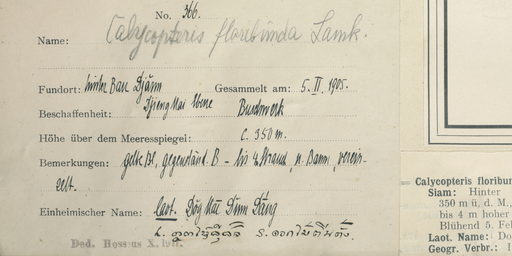 No. 366.
Name: Calycopteris floribunda Lamk.
Fundort: hinter Ban Djäm
Gesammelt am: 5. II. 1905.
Djieng Mai Ebene
Beschaffenheit: Buschwerk
Höhe über dem Meeresspiegel: c. 350 m.
Bemerkungen: gelbe Bl, gegenständ. B - bis 4 Strauch, n. Baum, verein-
zelt.
Einheimischer Name: laot. Dög Mai Dinn Dang
Ded. Hosseus X. 19
Calycopteris floribun
Siam: Hinter
350 m ü. d. M.,
bis 4 m hoher
Blühend 5. Fel
Laot. Name: Do
Geogr. Verbr.: I